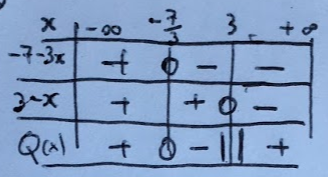 x | -∞ -7/3 3 +∞
-7-3x | + 0 - | -
3-x | + | + 0 -
Q(x) | + 0 - || +